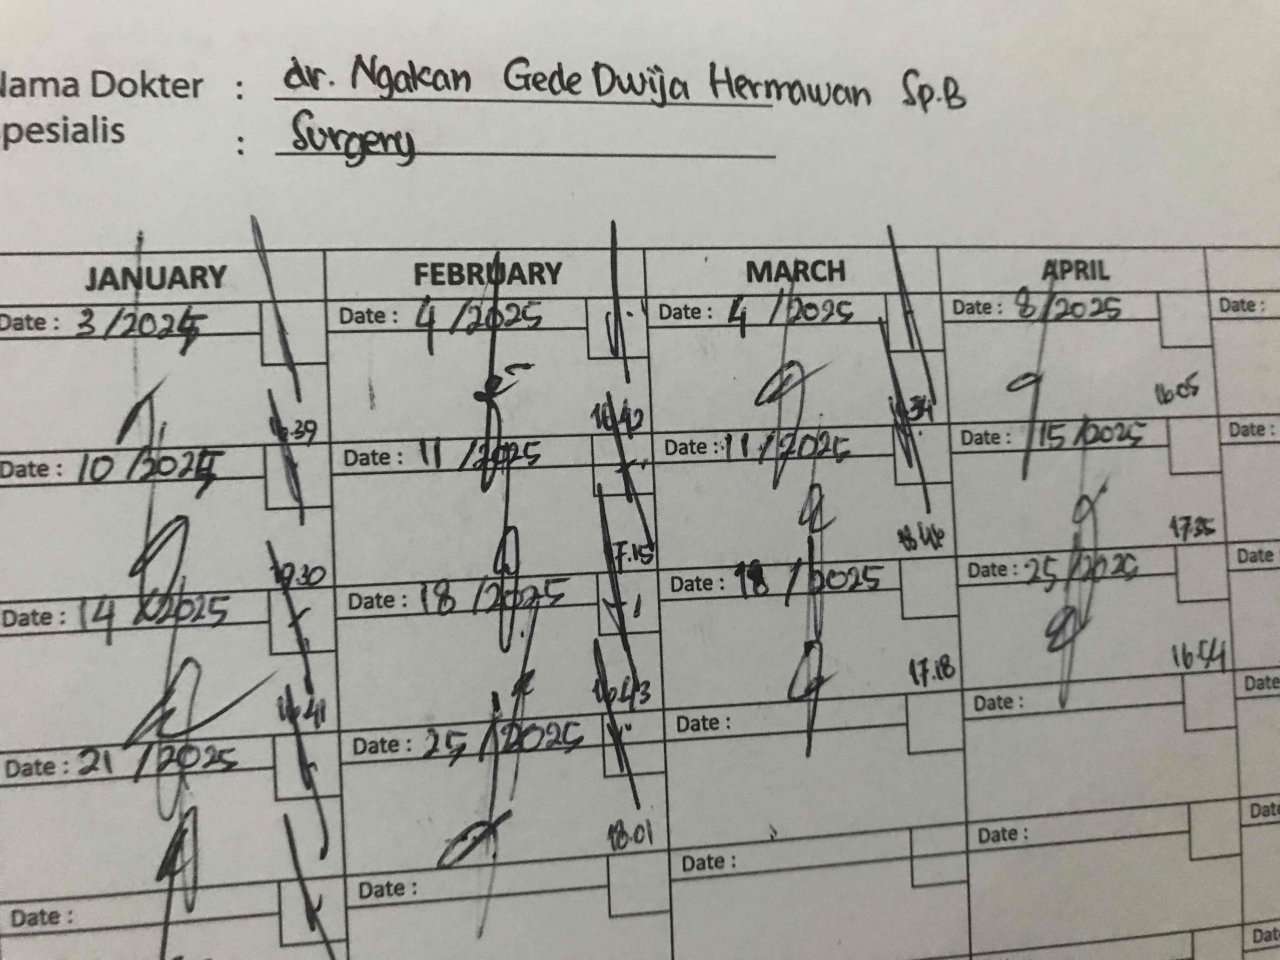 Nama Dokter : dr. Ngakan Gede Dwija Hermawan Sp.B
Spesialis : Surgery
JANUARY FEBRUARY MARCH APRIL
Date : 3/2025 Date : 4/2025 Date : 4/2025 Date : 8/2025 Date :
16.39 16.42 16.34 16.05
Date : 10/2025 Date : 11/2025 Date : 11/2025 15/2025 Date :
17.15 17.35
Date : 14/2025 Date : 18/2025 Date : 18/2025 Date : 25/2025 Date
16.41 16.43 17.18 16.54
Date : 21/2025 Date : 25/2025 Date : Date : Date
18.01
Date : Date : Date : Date : Date
Dat